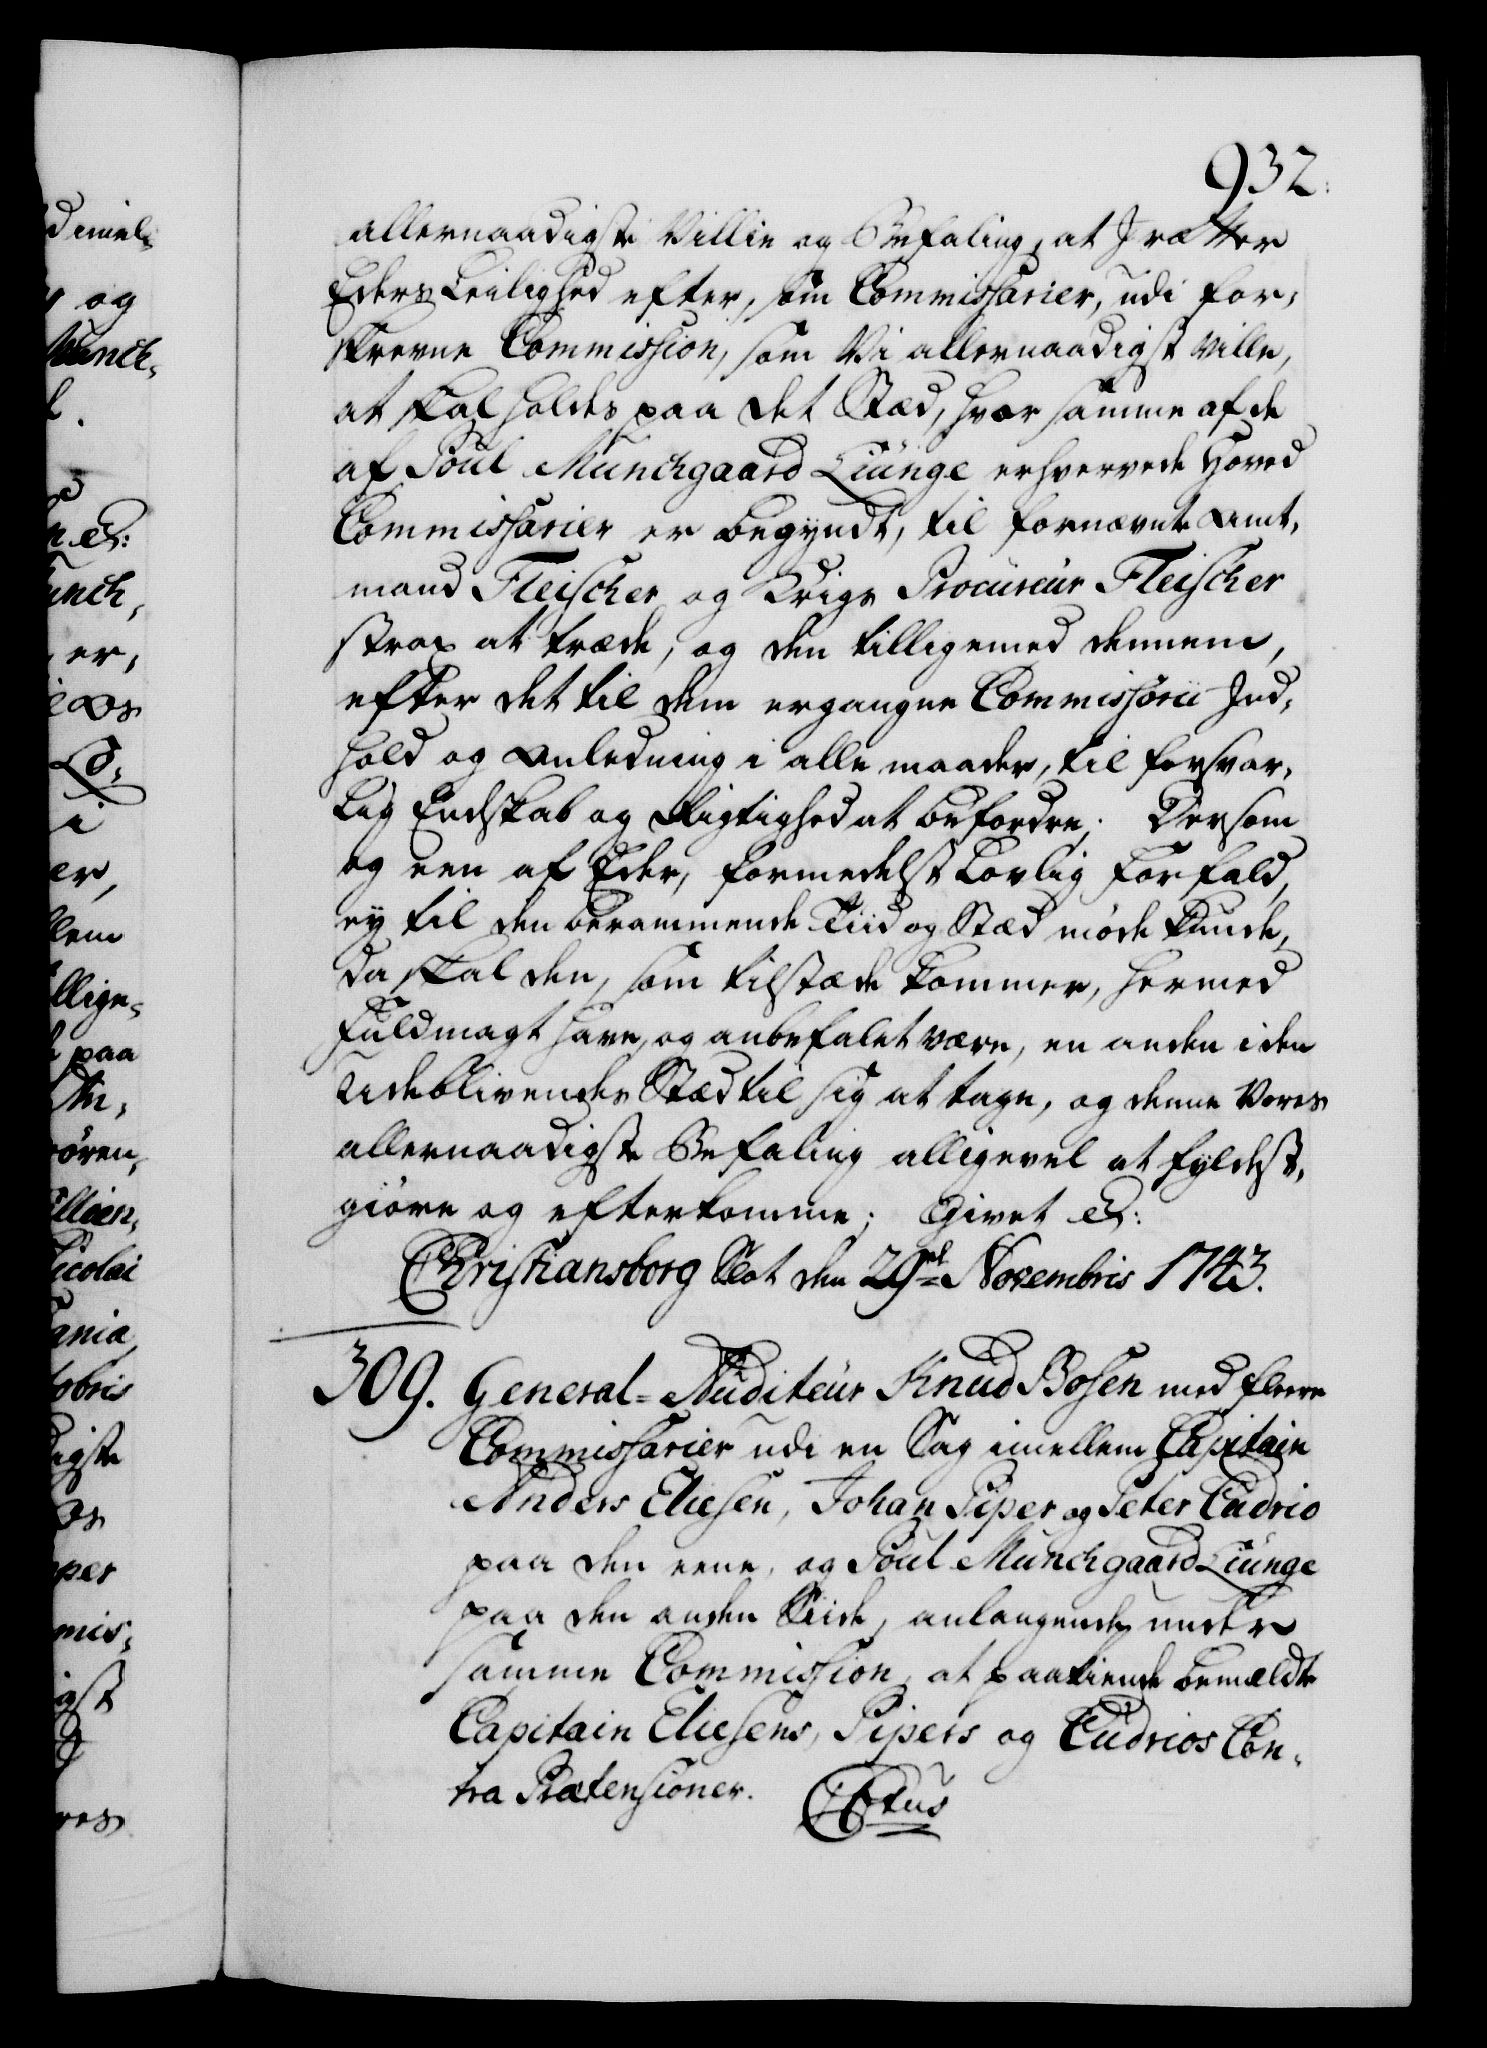 932.
allernaadigste Villie og Befaling, at I rætter
Eders Leilighed efter, som Commissarier, udi for-
skrevne Commission, som Vi allernaadigst ville,
at skal holdes paa det Stæd, hvor samme af de
af Poul Munchgaard Liunge erhvervede Hoved
Commissarier er begyndt, til fornævnte Amt-
mand Fleischer og Krigs Procureur Fleischer
strax at træde, og den tilligemed dennem,
efter det til dem ergangne Commissorii Ind-
hold og Anledning i alle maader, til forsvar-
lig Endskab og Rigtighed at befordre; Dersom
og een af Eder, formedelst Lovlig Forfald,
ey til den berammende Tiid og Stæd møde kunde,
da skal den, som tilstæde kommer, hermed
Fuldmagt have, og anbefalet være, en anden i den
Udeblivendes Stæd til sig at tage, og denne Vores
allernaadigste Befaling alligevel at fyldest-
giøre og efterkomme; Givet &:
Christiansborg Slot den 29de Novembris 1743.
309. General-Auditeur Knud Bosen med fleere
Commissarier udi en Sag imellem Capitain
Anders Eliesen, Johan Piper og Peter Cudrio
paa den eene, og Poul Munchgaard Liunge
paa den anden Siide, anlangende under
samme Commission, at paakiende bemældte
Capitain Eliesens, Pipers og Cudrios Con-
tra Prætensioner. CStus
d imel-
og
Munch-
&:
unch,
er,
i
er,
llem
llige-
paa
øren,
icolai
ania,
obris
igste
per
mis-
igst